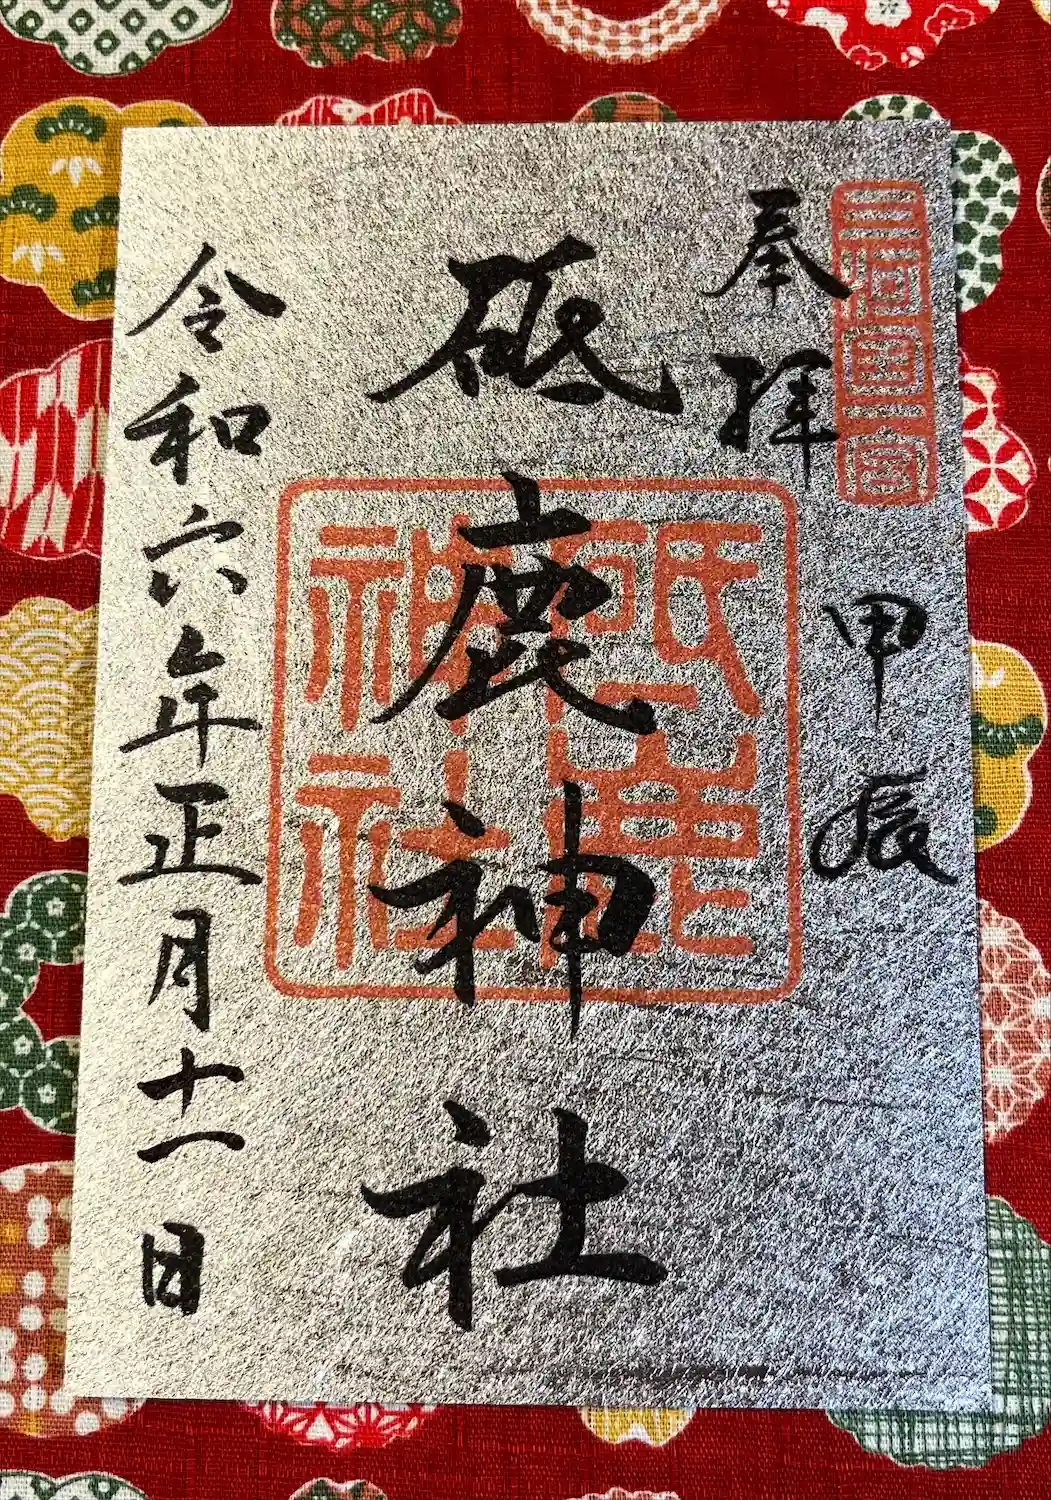 三河国一宮
奉拝
甲辰
砥鹿神社
砥鹿
神社
令和六年正月十一日